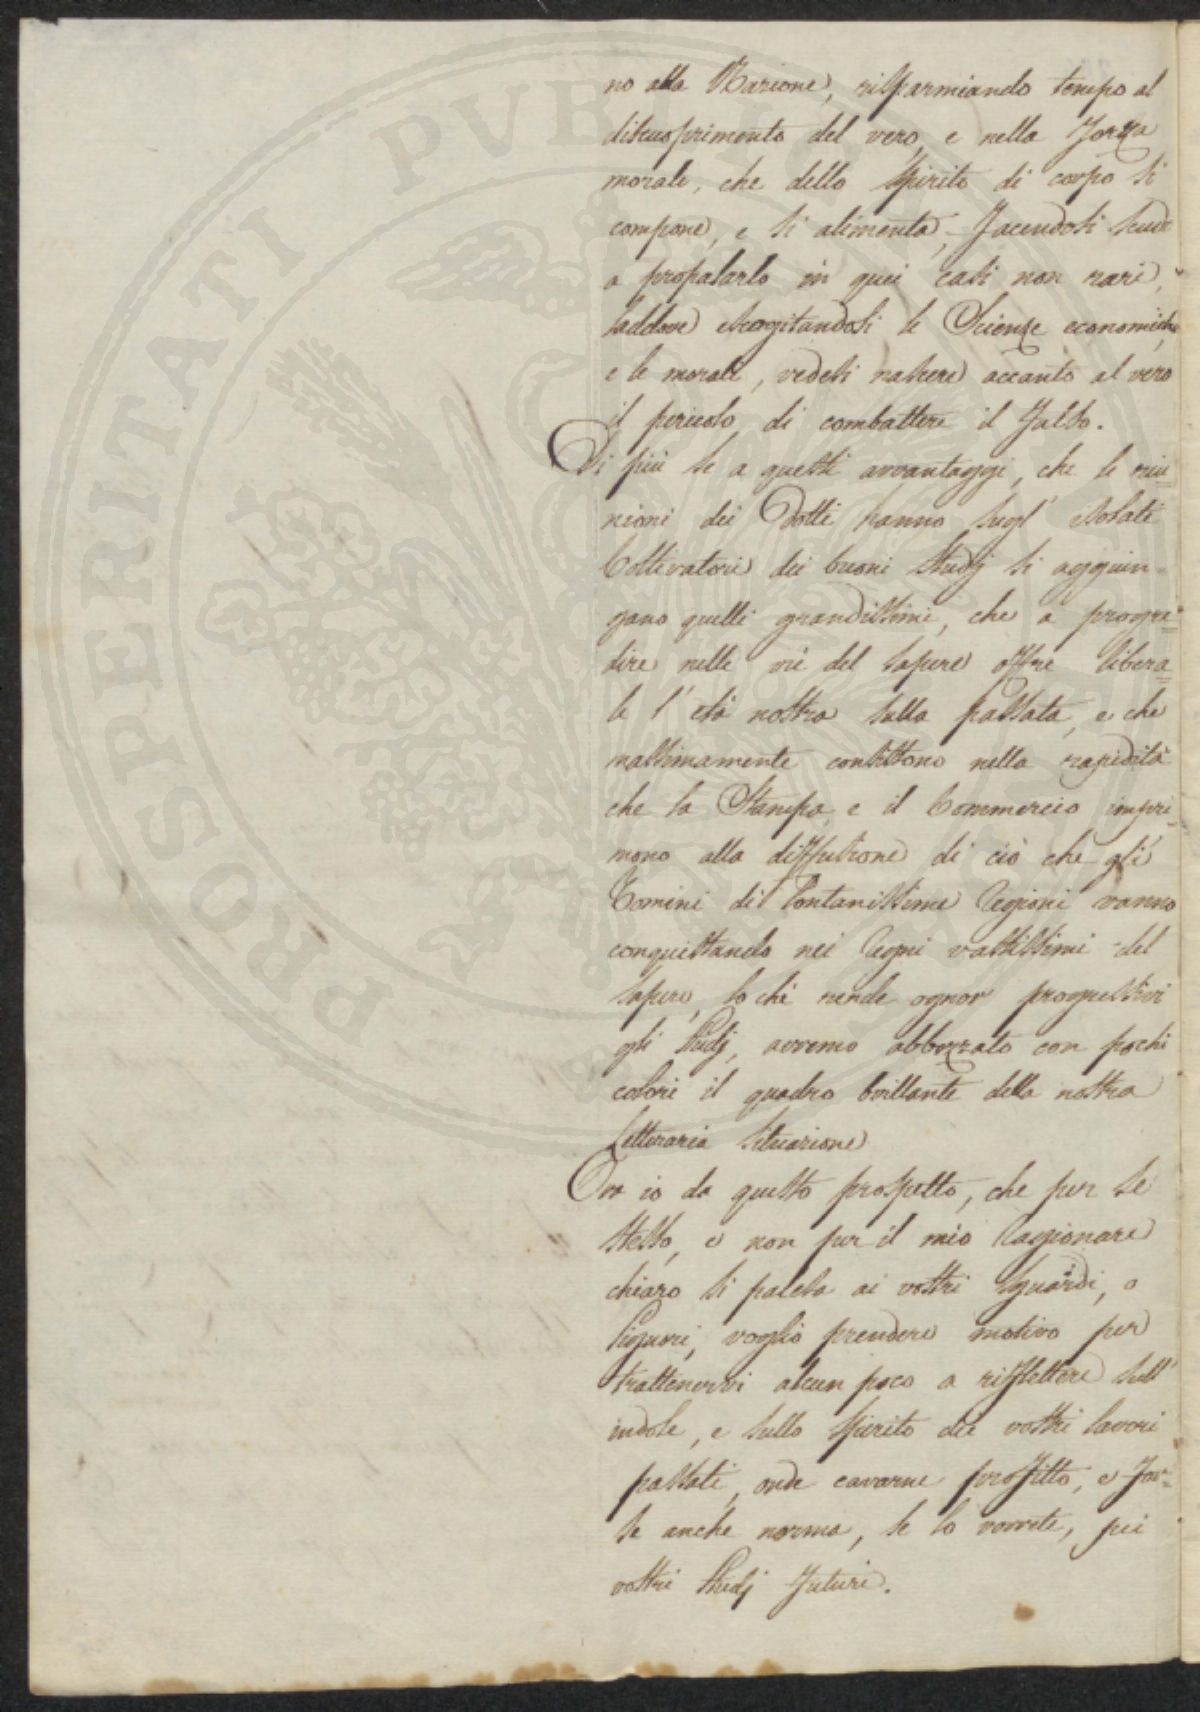 no alla Nazione, risparmiando tempo al
discuoprimento del vero, e nella forza
morale, che dello spirito di corpo si
compone, e si alimenta, facendosi scudo
a propalarlo in quei casi non rari,
laddove escogitandosi le Scienze economiche,
e le morali, vedesi nascere accanto al vero
il pericolo di combattere il falso.
Di più se a questi avvantaggi, che le riu=
nioni dei Dotti hanno sugl' isolati
Coltivatori dei buoni Studj si aggiun=
gano quelli grandissimi, che a progre=
dire nelle vie del sapere offre libera=
le l' età nostra sulla passata, e che
massimamente consistono nella rapidità
che la Stampa, e il Commercio impri=
mono alla diffusione di ciò che gli
Uomini di lontanissime Regioni vanno
conquistando nei Regni vastissimi del
sapere, lo chè rende ognor progressivi
gli Studj, avremo abbozzato con pochi
colori il quadro brillante della nostra
Letteraria situazione
Or io da questo prospetto, che per se
stesso, e non per il mio Ragionare
chiaro si palesa ai vostri sguardi, o
Signori, voglio prendere motivo per
trattenervi alcun poco a riflettere sull'
indole, e sullo spirito dei vostri lavori
passati, onde cavarne profitto, e for=
se anche norma, se lo vorrete, pei
vostri Studj futuri.
PROSPERITATI PVBLICAE